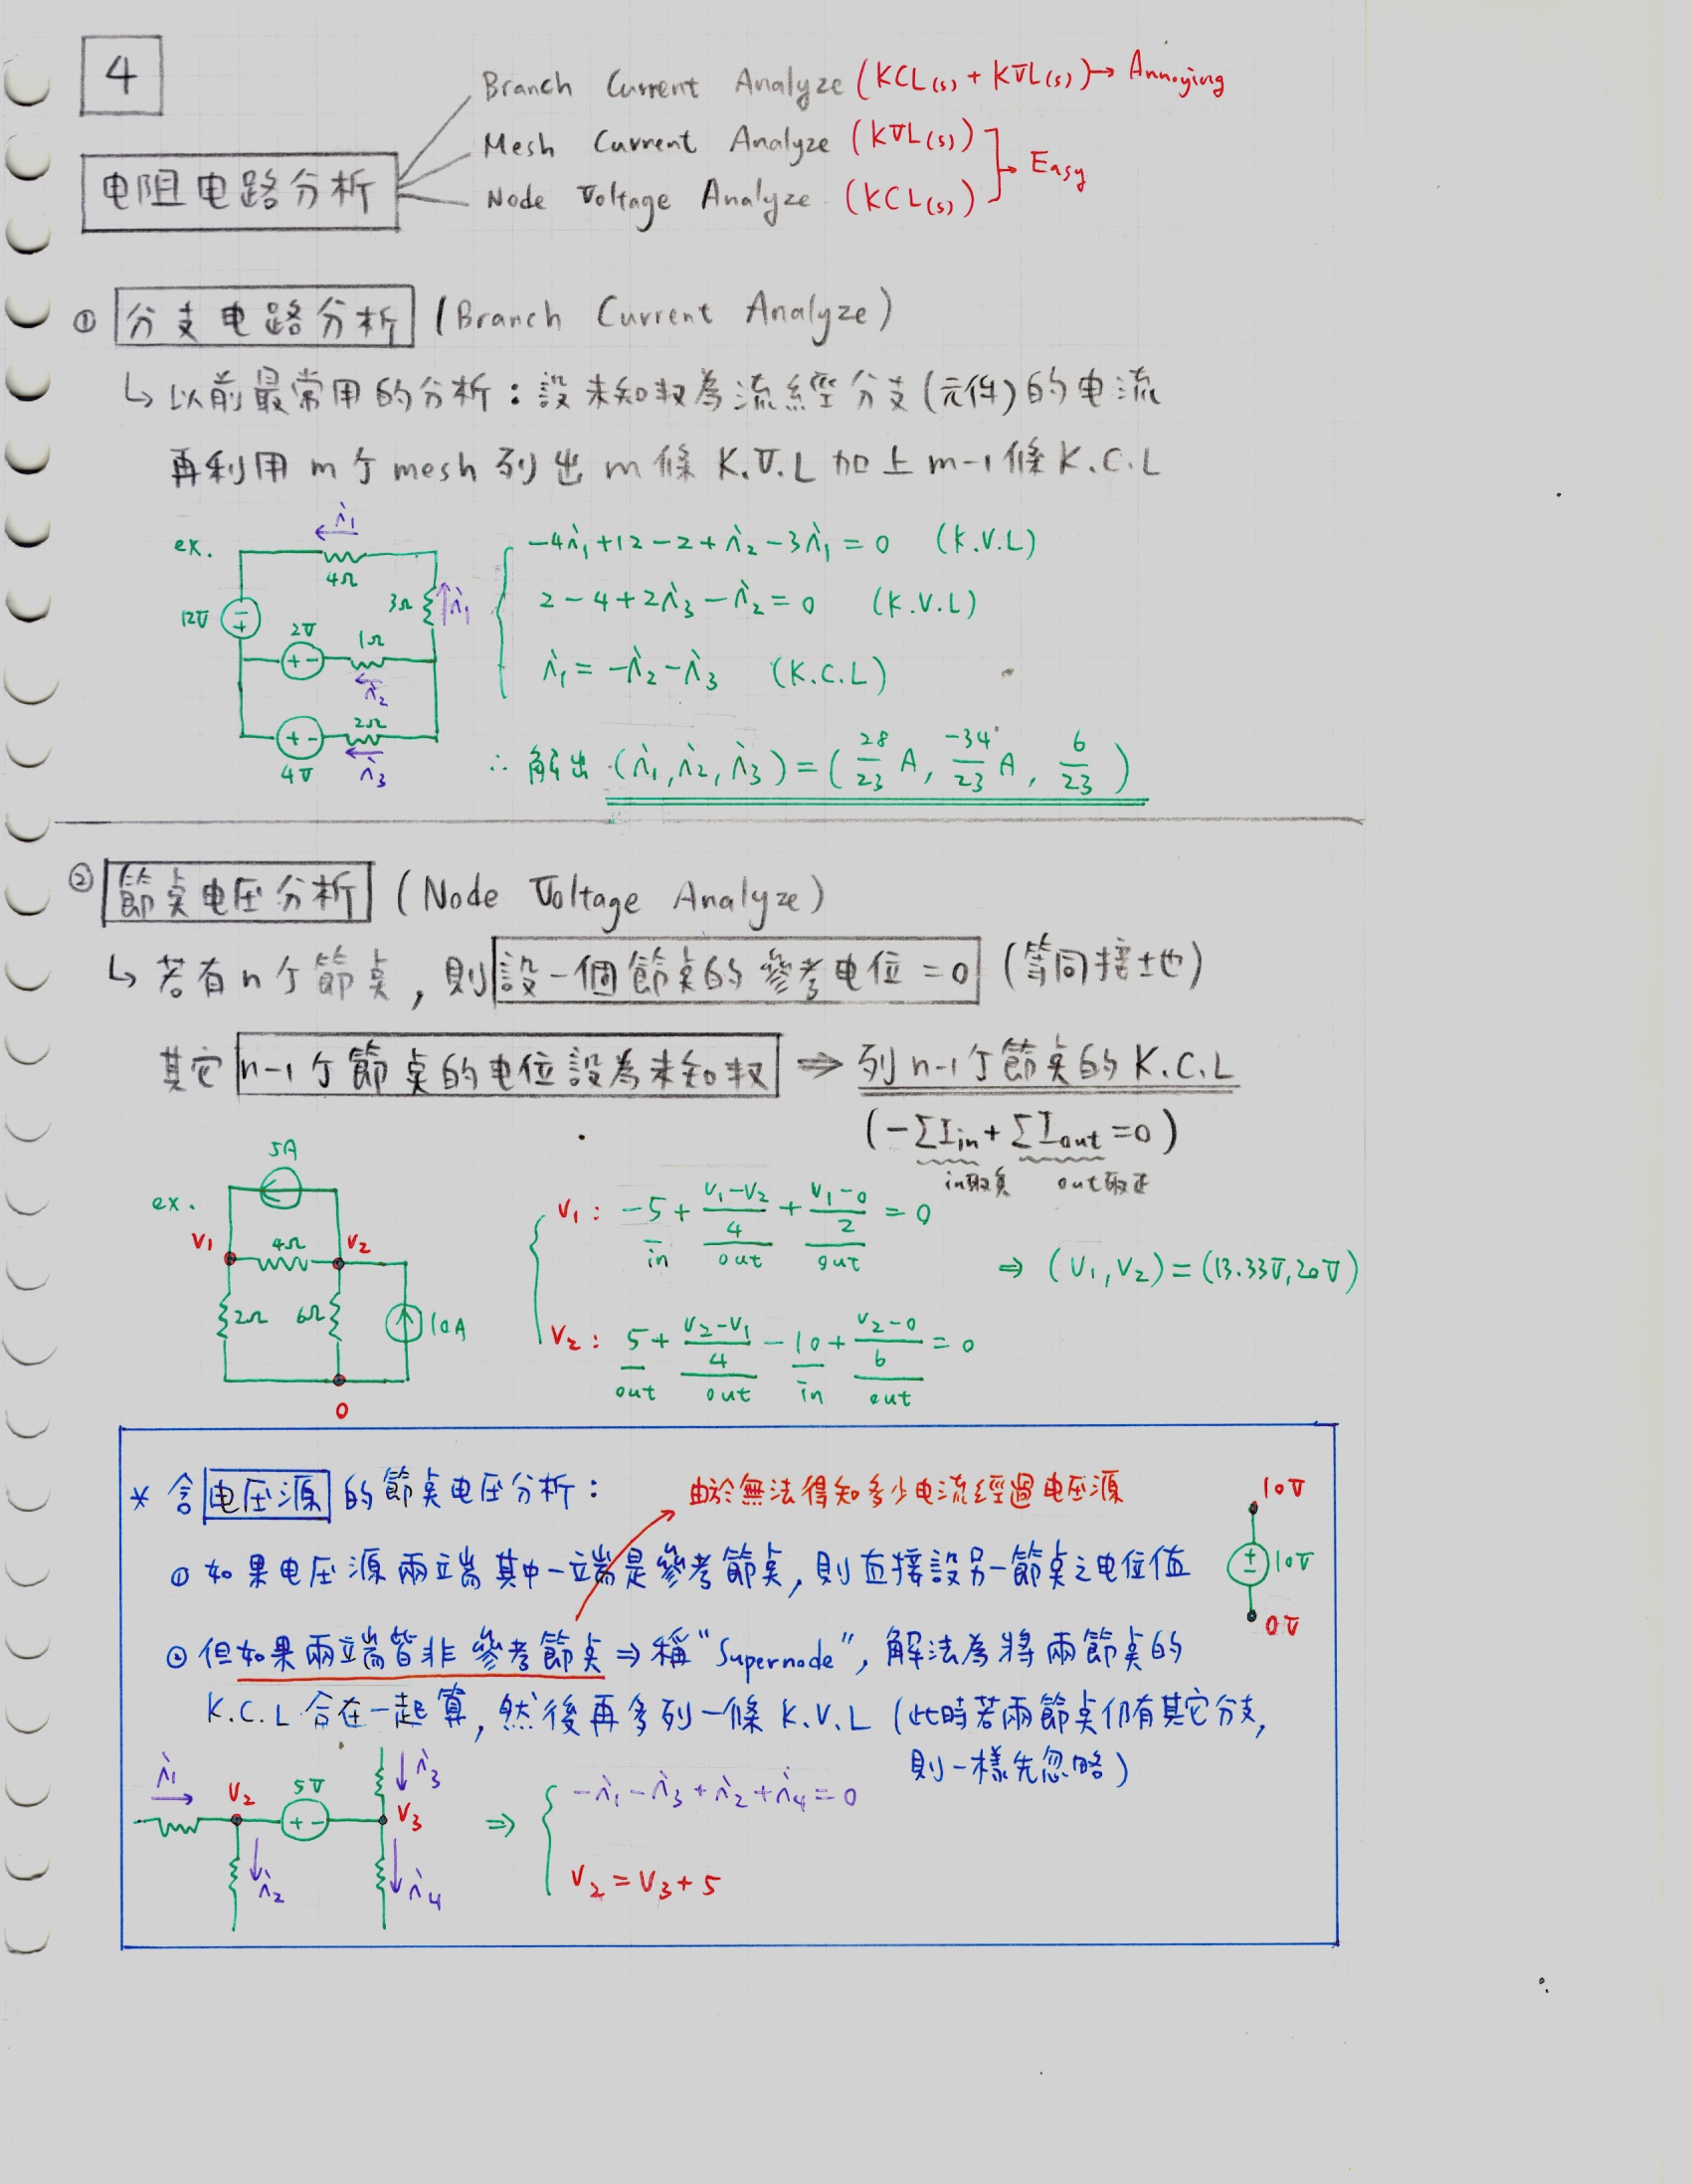 4
Branch Current Analyze (KCL(s) + KVL(s)) → Annoying
Mesh Current Analyze (KVL(s))
Node Voltage Analyze (KCL(s))
→ Easy
电阻电路分析
① 分支电路分析 (Branch Current Analyze)
↳ 以前最常用的分析：設未知数為流經分支(元件)的电流
再利用 m 个 mesh 列出 m 條 K.V.L 加上 m-1 條 K.C.L
ex.
i₁
4Ω
3Ω
i₁
12V
2V
1Ω
i₂
2Ω
4V
i₃
-4i₁+12-2+i₂-3i₁=0 (K.V.L)
2-4+2i₃-i₂=0 (K.V.L)
i₁=-i₂-i₃ (K.C.L)
∴ 解出 (i₁,i₂,i₃)=(28/23 A, -34/23 A, 6/23)
② 節点电压分析 (Node Voltage Analyze)
↳ 若有 n 个節点, 則設一個節点的參考电位=0 (等同接地)
其它 n-1 个節点的电位設為未知数 ⇒ 列 n-1 个節点的 K.C.L
(-ΣI in + ΣI out = 0)
in取負 out取正
ex.
5A
V₁
4Ω
V₂
2Ω
6Ω
10A
0
V₁: -5 + (V₁-V₂)/4 + (V₁-0)/2 = 0
in out out
⇒ (V₁,V₂)=(13.33V,20V)
V₂: 5 + (V₂-V₁)/4 - 10 + (V₂-0)/6 = 0
out out in out
* 含电压源的節点电压分析：
由於無法得知多少电流經過电压源
① 如果电压源兩端其中一端是參考節点, 則直接設另一節点之电位值
10V
10V
0V
② 但如果兩端皆非參考節点 ⇒ 稱"Supernode", 解法為將兩節点的
K.C.L 合在一起算, 然後再多列一條 K.V.L (此時若兩節点仍有其它分支,
則一樣先忽略)
i₁
V₂
5V
i₃
V₃
i₂
i₄
⇒
-i₁-i₃+i₂+i₄=0
V₂=V₃+5